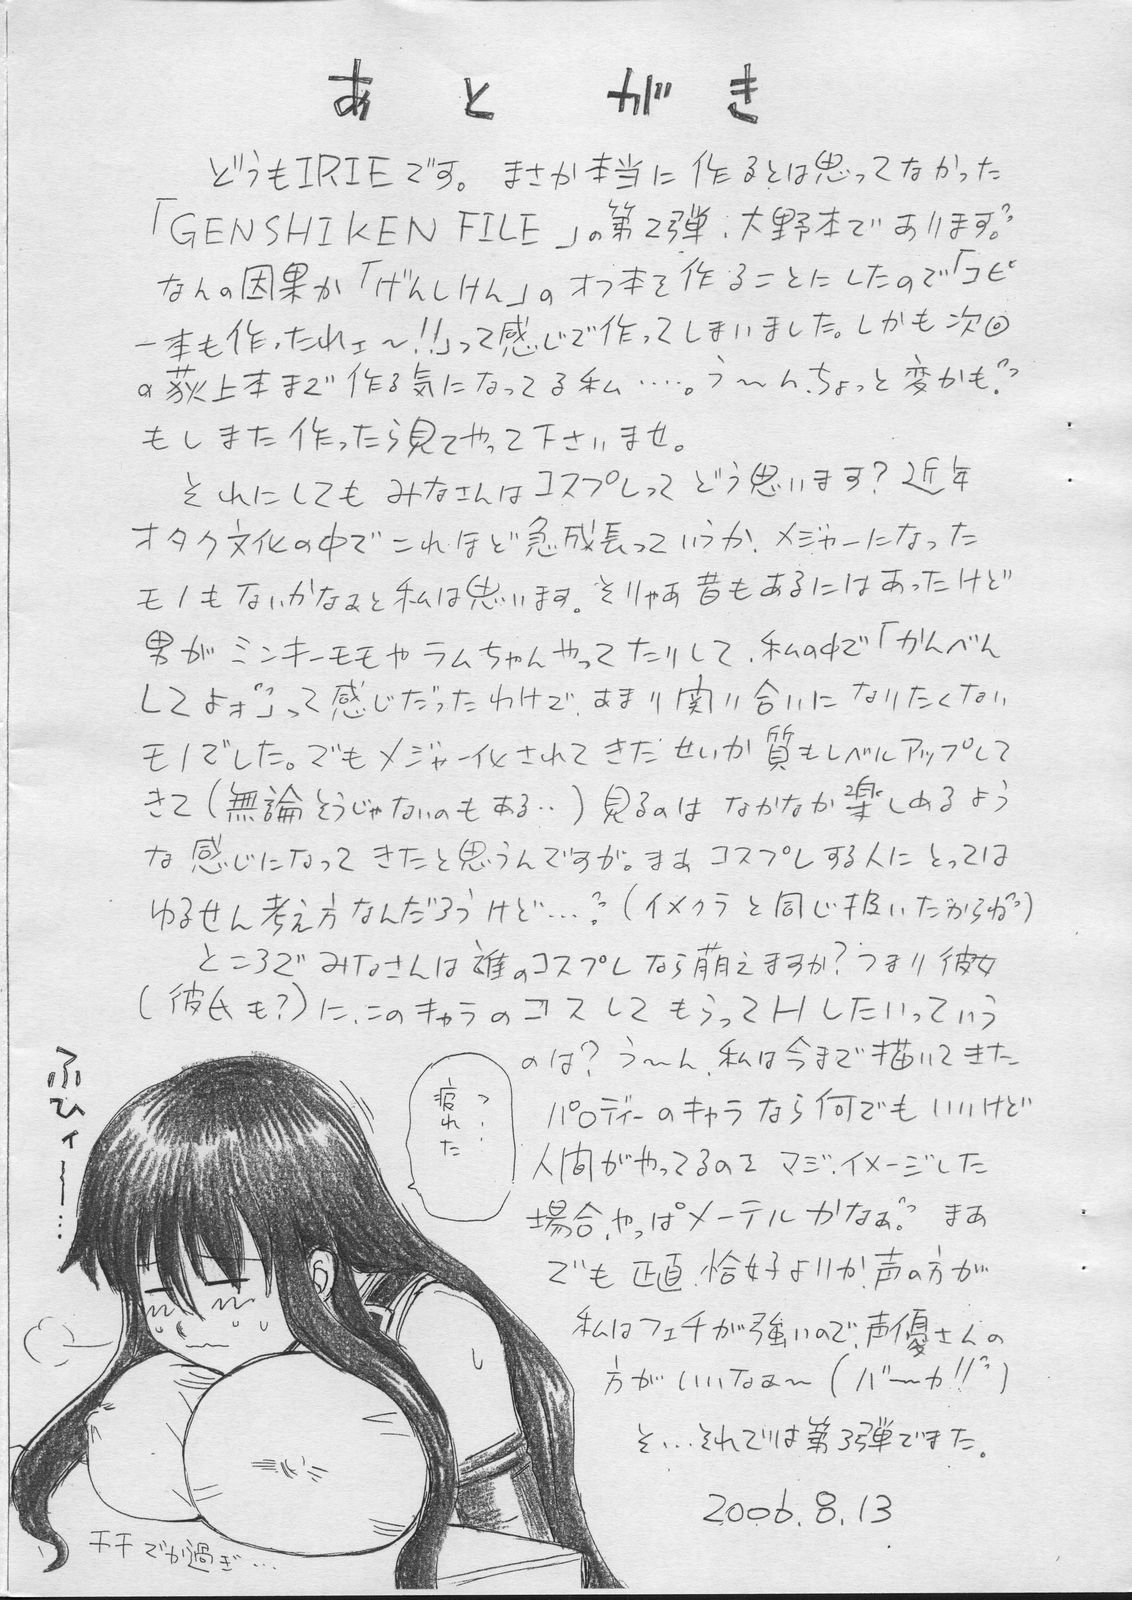 あとがき
どうもIRIEです。まさか本当に作るとは思ってなかった
「GENSHIKEN FILE」の第2弾、大野本であります。
なんの因果か「げんしけん」のオフ本を作ることにしたので「コピ
ー本も作ったれェ〜!!」って感じで作ってしまいました。しかも次回
の荻上本まで作る気になってる私……。う〜ん、ちょっと変かも?
もしまた作ったら見てやって下さいませ。
それにしてもみなさんはコスプレってどう思います?近年
オタク文化の中でこれほど急成長っていうか、メジャーになった
モノもないかなぁと私は思います。そりゃあ昔もあるにはあったけど
男がミンキーモモやラムちゃんやってたりして、私の中で「かんべん
してよォ」って感じだったわけで、あまり関り合いになりたくない
モノでした。でもメジャー化されてきたせいか質もレベルアップして
きて(無論そうじゃないのもある‥)見るのはなかなか楽しめるよう
な感じになってきたと思うんですが。まぁコスプレする人にとっては
ゆるせん考え方なんだろうけど…。(イメクラと同じ扱いだからね)
ところでみなさんは誰のコスプレなら萌えますか?つまり彼女
(彼氏も?)に、このキャラのコスしてもらってHしたいっていう
のは?う〜ん、私は今まで描いてきた
パロディーのキャラなら何でもいいけど
人間がやってるのをマジ、イメージした
場合、やっぱメーテルかなぁ。まあ
でも正直、恰好よりか声の方が
私はフェチが強いので、声優さんの
方がいいなぁ〜(バーカ!!)
そ…それでは第3弾でまた。
2006.8.13
ふひィ〜…
つ…
疲れた
チチでか過ぎ…